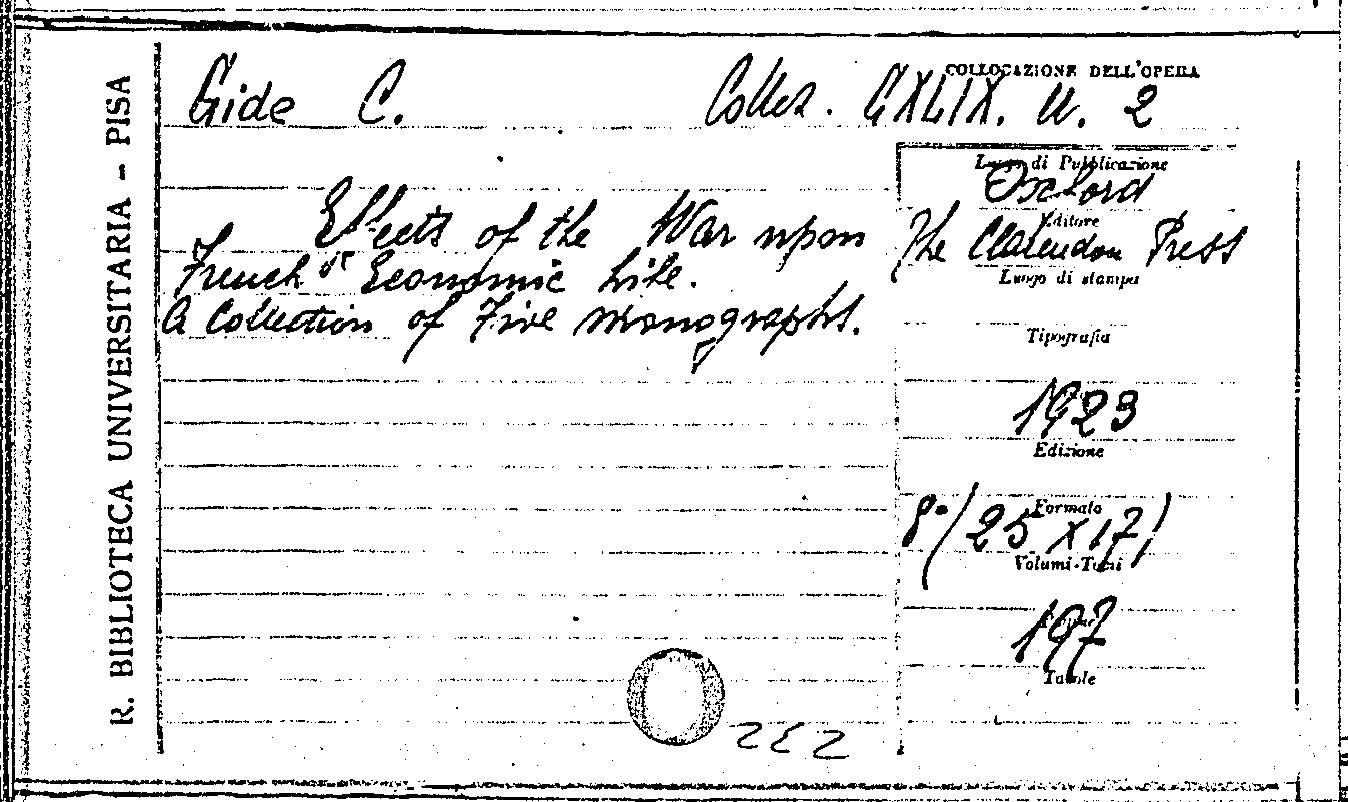 R. BIBLIOTECA UNIVERSITARIA - PISA
COLLOCAZIONE DELL'OPERA
Gide C. Collez. CXLIX. n. 2
Effects of the War upon
French Economic Life.
A Collection of Five monographs.
Luogo di Pubblicazione
Oxford
Editore
The Clarendon Press
Luogo di stampa
Tipografia
1923
Edizione
Formato
8° (25 x 17)
Volumi-Tomi
197
Tavole